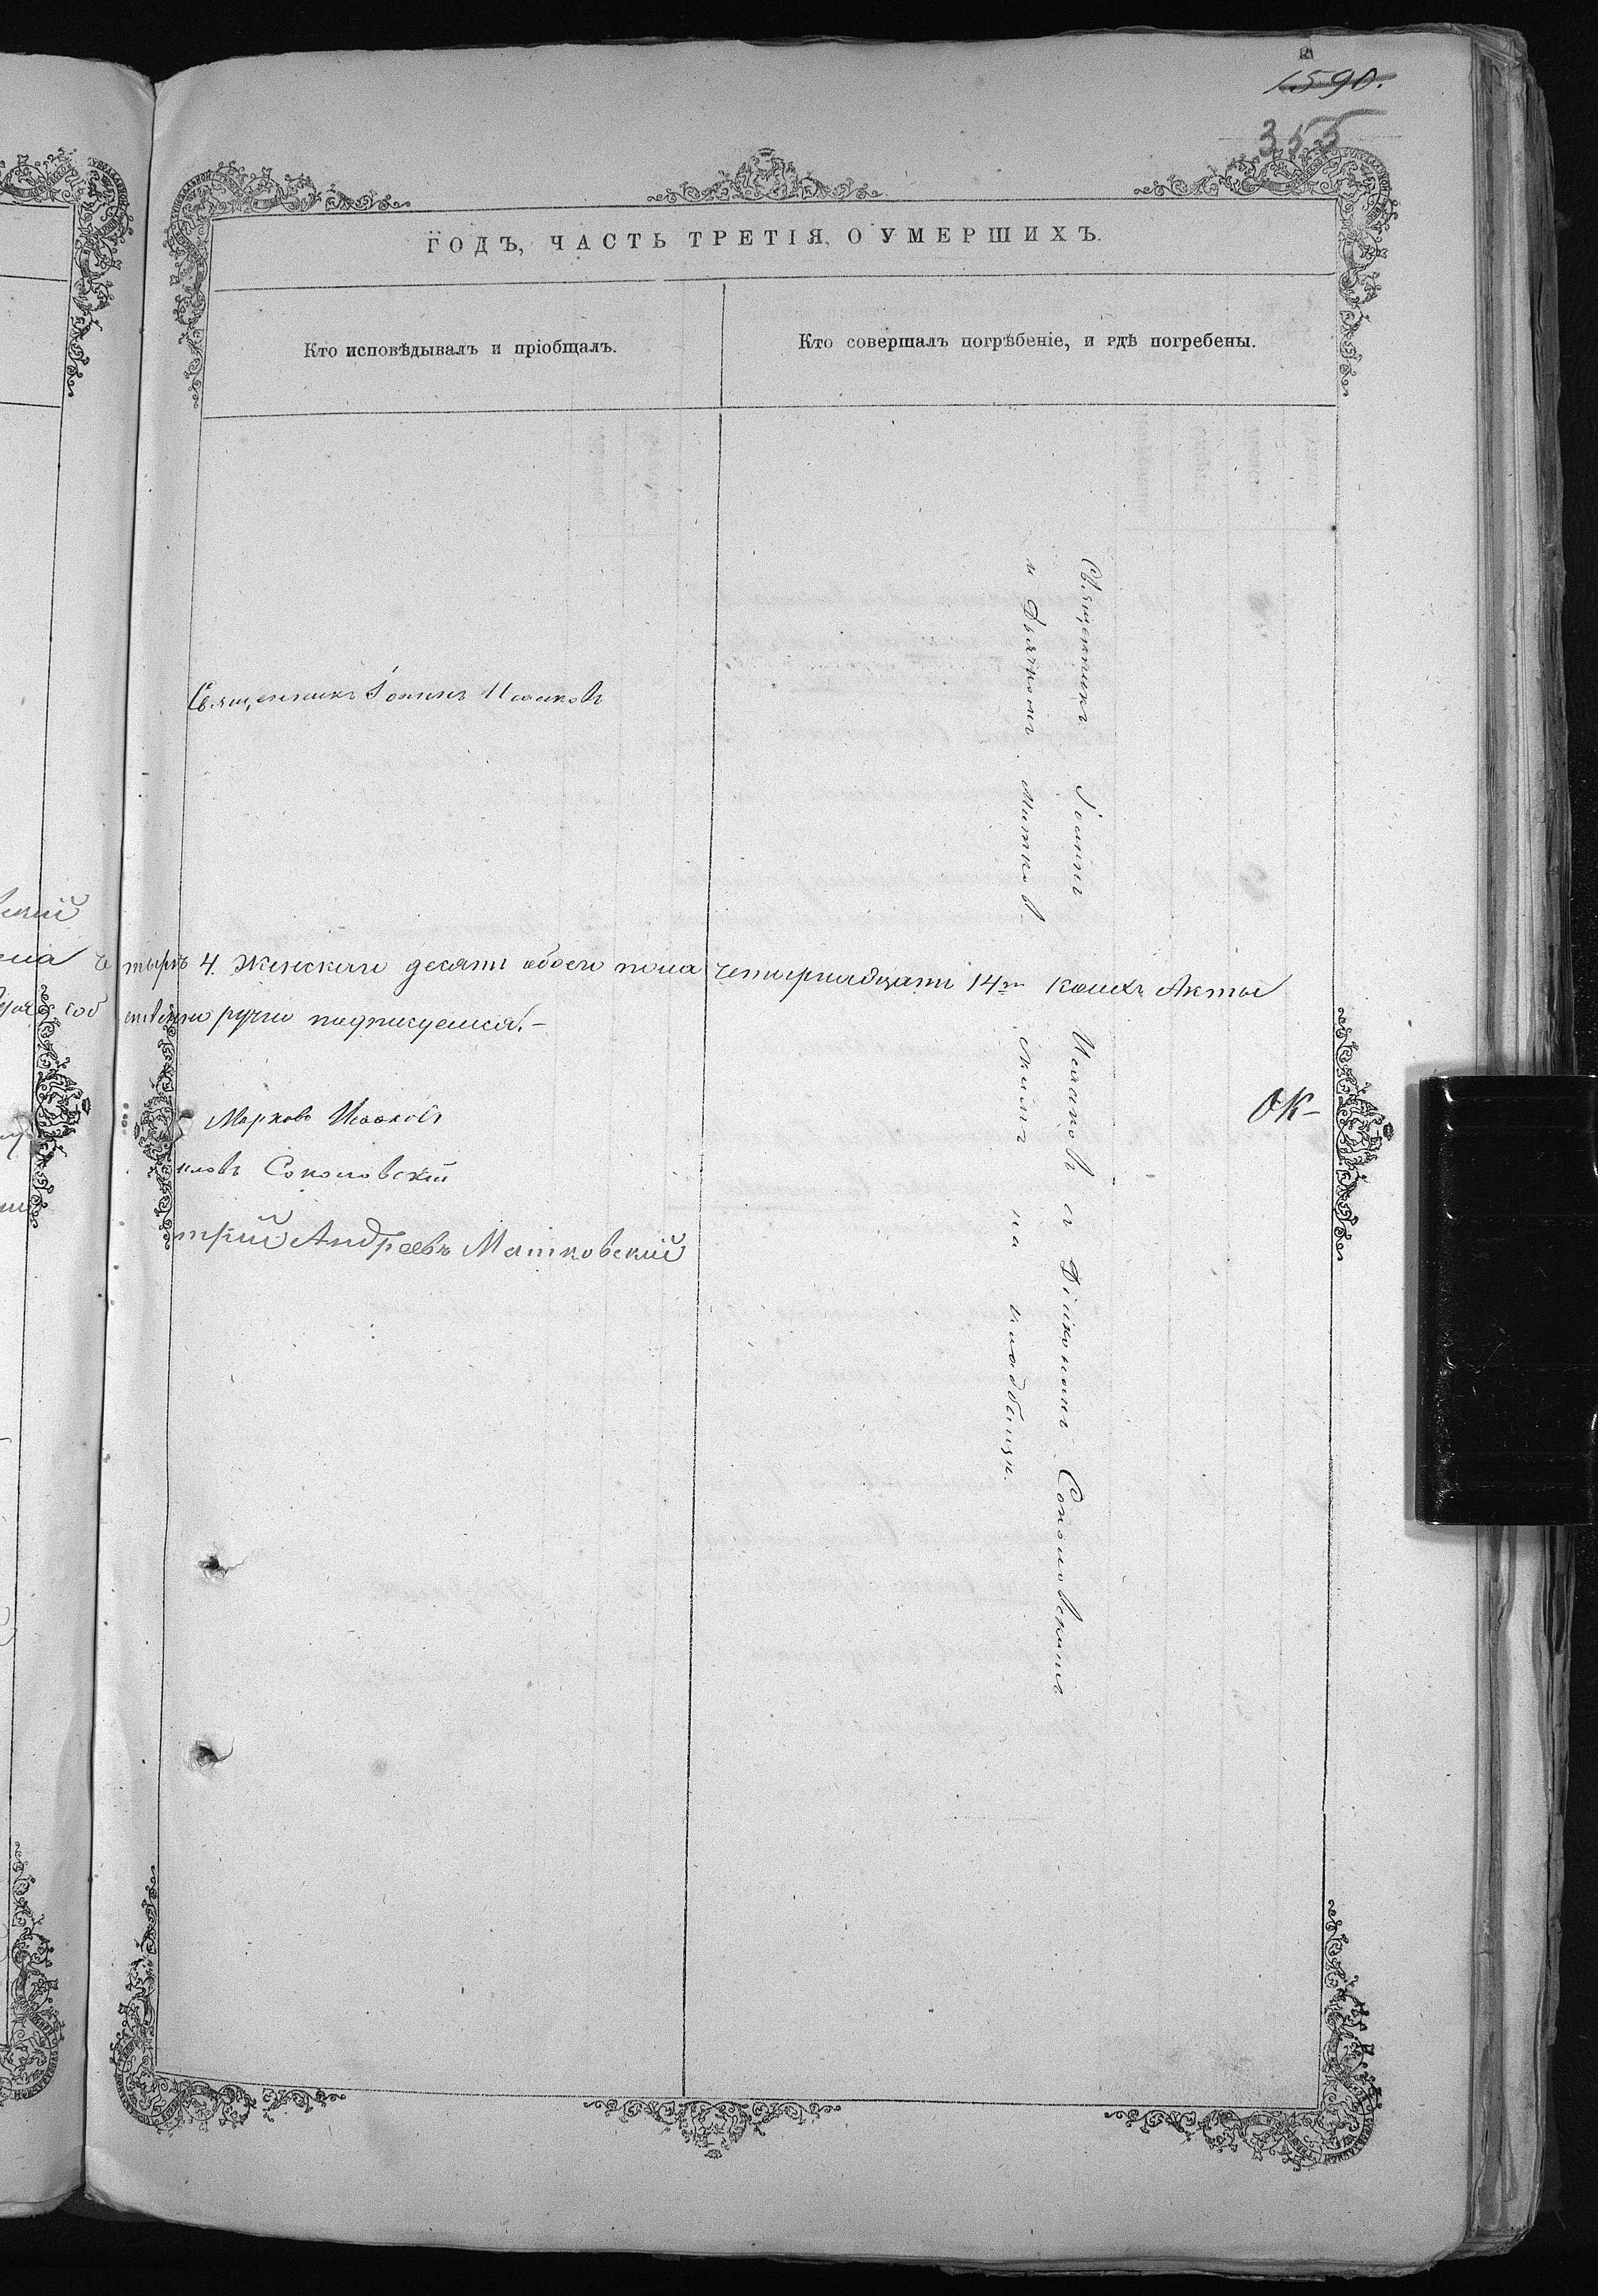 1590.
355
ГОДЪ, ЧАСТЬ ТРЕТІЯ, О УМЕРШИХЪ.
Кто исповѣдывалъ и пріобщалъ.
Кто совершалъ погрѣбеніе, и гдѣ погребены.
Священникъ Іоаннъ Исаковъ
Священникъ Іоаннъ Исаковъ съ Діакономъ Соколовскимъ
и Дьячкомъ на кладбищѣ.
четырѣ 4. Женскаго десять обоего пола четырнадцать 14ть коихъ Акты
собственно ручно подписуемся.-
Марковъ Исаковъ
Соколовскій
трій Андреевъ Матковскій
ОК-